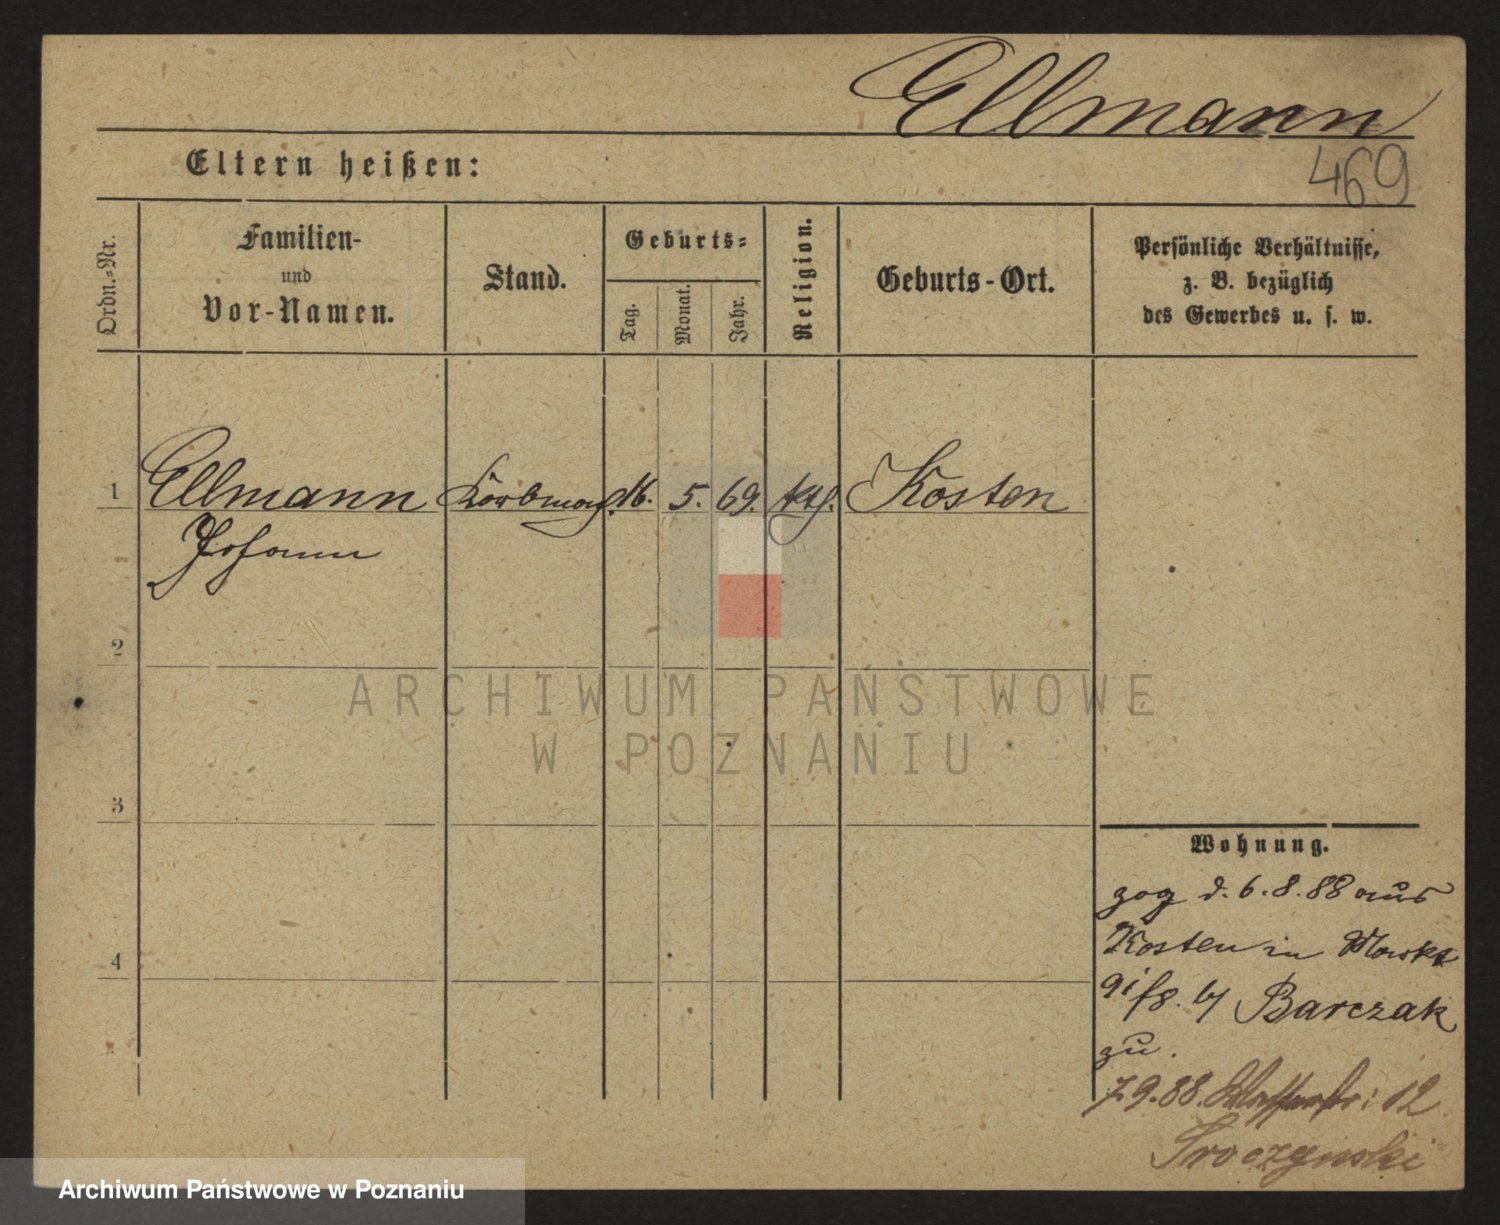 Ellmann
469
Eltern heißen:
Ordn.-Nr.
Familien-
und
Vor-Namen.
Stand.
Geburts-
Tag.
Monat.
Jahr.
Religion.
Geburts-Ort.
Persönliche Verhältnisse,
z. B. bezüglich
des Gewerbes u. s. w.
1 Ellmann Korbmach. 16. 5. 69. kth. Kosten
Johann
2
3
4
ARCHIWUM PAŃSTWOWE
W POZNANIU
Wohnung.
zog d. 6.8.88 aus
Kosten in Markt
91 /8. by Barczak
zu.
7.9.88. 12
Troczynski
Archiwum Państwowe w Poznaniu